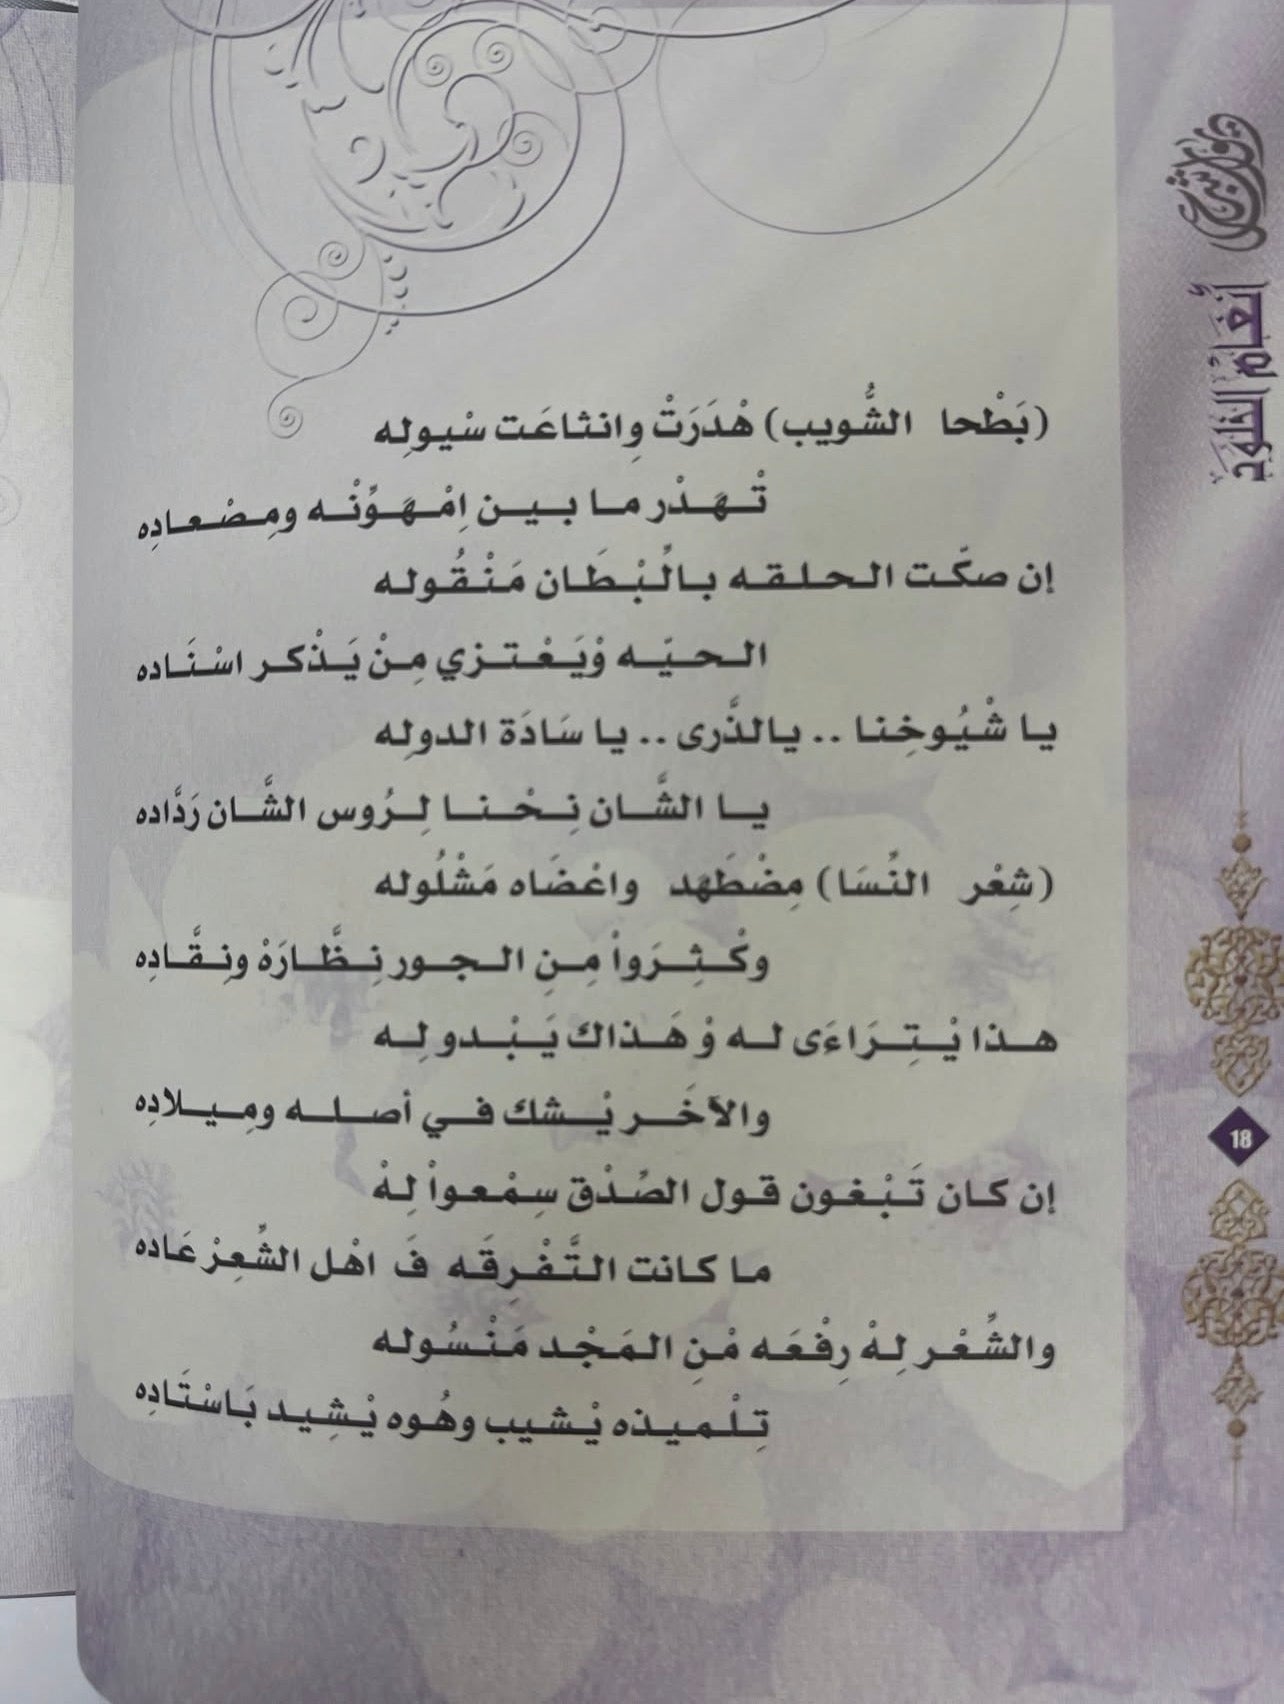 (بَطْحا الشُّويب) هْدَرَتْ وِانثاعَت سْيولِه
تْهَدْر ما بين اِمْهَوِّنْه ومِصْعادِه
إن صكّت الحلقه بالْبْطَان مَنْقُوله
الحيّه وْيَعْتزي مِنْ يَذْكر اسْنَاده
يا شْيُوخِنا .. يالذَّرى .. يا سَادَة الدولِه
يا الشَّان نِحْنا لِرُوس الشَّان رَدَّاده
(شِعْر النِّسَا) مِضْطَهَد واعْضَاه مَشْلُوله
وكْثِرَواْ مِنِ الجور نِظَّارَهْ ونِقَّادِه
هذا يْتِرَاءَى له وْ هَذاك يَبْدولِه
والآخَر يْشك في أصله ومِيلادِه
إن كان تَبْغون قول الصِّدْق سِمْعواْ لِهْ
ما كانت التَّفْرِقَه فَ اهْل الشِّعِرْ عَاده
والشِّعْر لِهْ رِفْعَه مْنِ المَجْد مَنْسُوله
تِلْميذه يْشيب وهُوه يْشِيد بَاسْتَادِه
أنغام الخلود
18